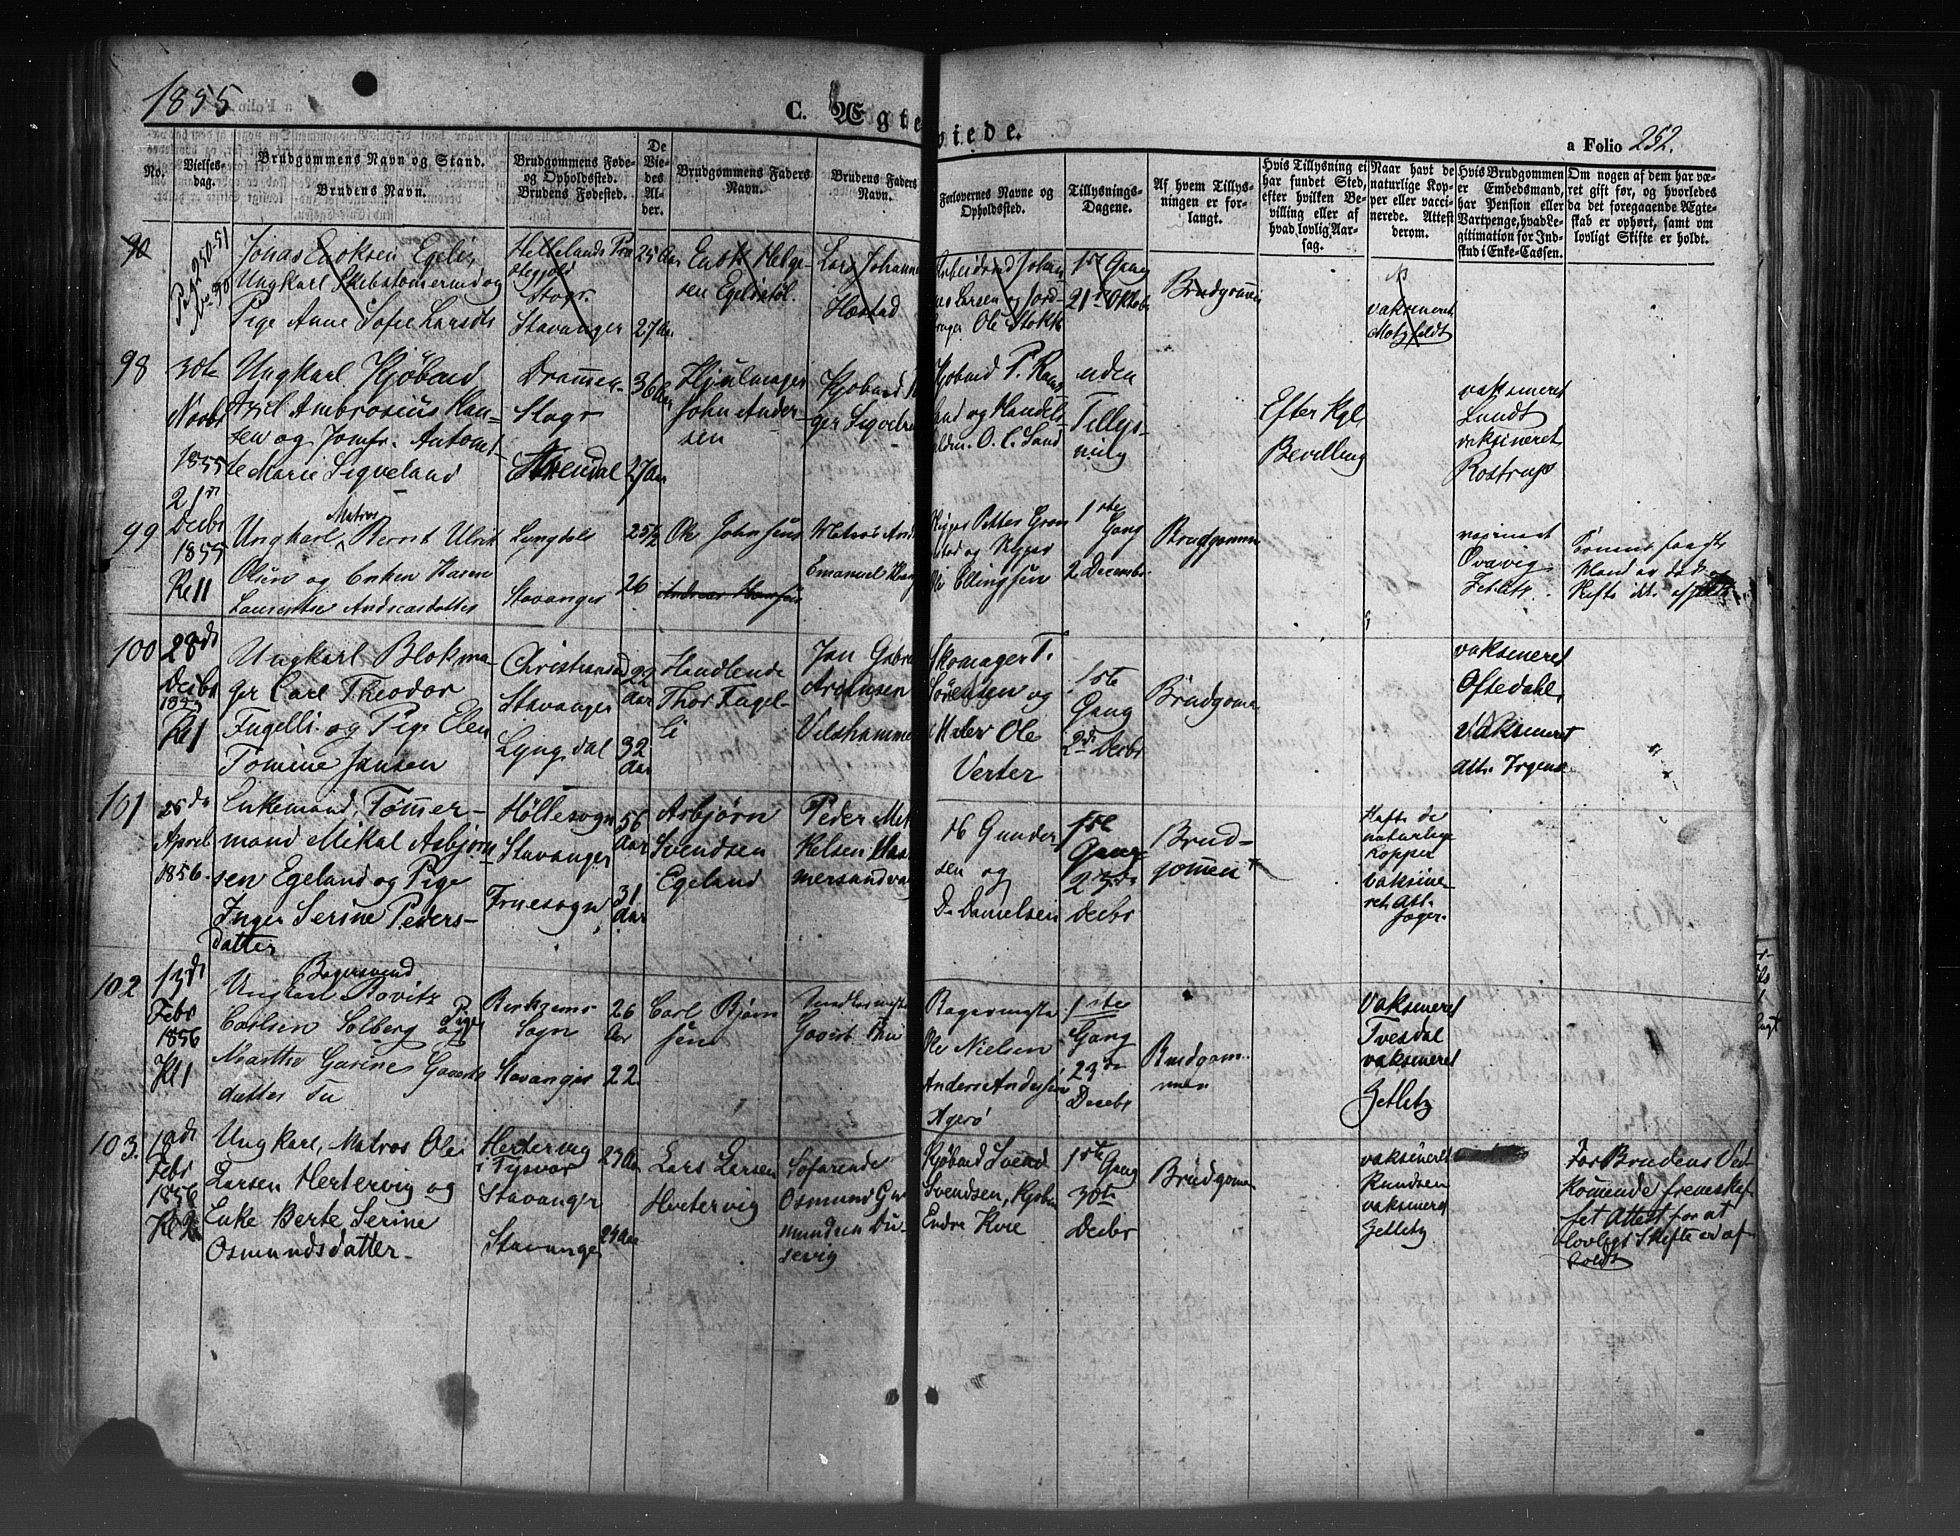 1855
C. Ægteviede.
a Folio 252.
No.
Vielses-
dag.
Brudgommens Navn og Stand.
Brudens Navn.
Brudgommens Føde-
og Opholdssted.
Brudens Fødested.
De
Vie-
des
Al-
der.
Brudgommens Faders
Navn.
Brudens Faders
Navn.
Forlovernes Navne og
Opholdssted.
Tillysnings-
Dagene.
Af hvem Tillys-
ningen er for-
langt.
Hvis Tillysning ei
har fundet Sted,
efter hvilken Be-
villing eller af
hvad lovlig Aar-
sag.
Naar havt de
naturlige Kop-
per eller vacci-
nerede. Attest
derom.
Hvis Brudgommen
er Embedsmand,
har Pension eller
Vartpenge, hvad Le-
gitimation for Ind-
skud i Enke-Cassen.
Om nogen af dem har væ-
ret gift før, og hvorledes
da det foregaaende Ægte-
skab er ophørt, samt om
lovligt Skifte er holdt.
Pag 250-51
No 90
Jonas Eriksen Egelis
Ungkarl Skibstømermd og
Pige Anne Sofie Larsdtr
Hellelands Præ
stegjeld
Stvgr.
Stavanger
25 Aar
27 Aar
Erik Helge-
sen Egelistøl
Lars Johannes
Hastad
Arbeidsmd Johan
nes Larsen og Jord-
bruger Ole Stokke
1ste Gang
21de Oktobr
Brudgommen
vaksineret
Motzfeldt
98
30te
Novbr
1855
Ungkarl Kjøbmd
Axel Ambrosius Han-
sen og Jomfr. Antonet-
te Marie Sigveland
Drammen
Stvgr
Arendal
36 Aar
27 Aar
Hjulmager
John Ander-
sen
Kjøbmd
Kjøbmd P. Rand
land og Handels
O. C. Sand
uden
Tillys-
ning
Efter Kgl
Bevilling
vaksineret
Lundt
vaksineret
Rostrup
99
21de
Decbr
1855
Kl 11
Ungkarl Matros Bernt Ulrik
Olsen og Enken Karen
Lauentse Andreasdatter
Lyngdal
Stavanger
25 1/2
26
Ole Johnsen
Andreas Hansen
Matros And
Emanuel
Skipper Petter Gron
stad og Skipper
Ole Ellingsen
1ste
Gang
2 Decembr
Brudgommen
vaxineret
Zetlitz
100
28de
Decbr
1855
Kl 1
Ungkarl Blokma-
ger Carl Theodor
Fugelli og Pige Elen
Tomine Jansen
Christiansand
Stavanger
Lyngdal
22
Aar
32
Aar
Handlende
Thor Fugel-
li
Jan Gabri
Arentsen
Vilshammer
Skomager T.
Sørensen og
Maler Ole
Verter
1ste
Gang
2de Decbr
Brudgommen
vaksineret
Oftedahl
Vaksineret
Att. Irgens
101
25de
April
1856.
Enkemand, Tømmer-
mand Mikal Asbjørn-
sen Egeland og Pige
Inger Serine Peders-
datter
Høllesogn
Stavanger
Fruesogn
56
Aar
31
Aar
Asbjørn
Svendsen
Egeland
Peder Mik
kelsen Ham
mersandvai
Gunder-
sen og
D. Danielsen
1ste
Gang
23de
Decbr
Brud-
gommen
Hafte de
naturlige
Kopper
vaksine-
ret Att.
Jager.
102
13de
Febr
1856
Kl 1
Bagersvend
Ungkarl Rovitz
Carlsen Solberg og Pige
Marthe Gurine Goverts
datter Tu
Birkrems
Sogn
Stavanger
26
Aar
22
Carl Bjørn
sen
Govert Thu
Bagermester
Ole Nielsen
Anders Andersen
Agerø
1ste
Gang
23de
Decebr
Brudgom-
men
Vaksineret
Tvesdal
vaksineret
Zetlitz
103.
18de
Febr
1856
Kl 2
Ungkarl, Matros Ole
Larsen Hertervig og
Enke Berte Serine
Osmundsdatter
Hertervig
i Tysvær
Stavanger
Stavanger
23 Aar
24 Aar
Lars Larsen
Hertervig
Søfarende
Osmund Gud
mundsen Du
sevig
Kjøbmd Svend
Svendsen, Kjøbm
Endre Kvie
1ste
Gang
30te
Decbr
Brudgommen
vaksineret
Knudsen
vaksineret
Zetlitz
For Brudens Ved-
kommende fremskaf-
fet Attest for at
lovligt Skifte er af-
holdt